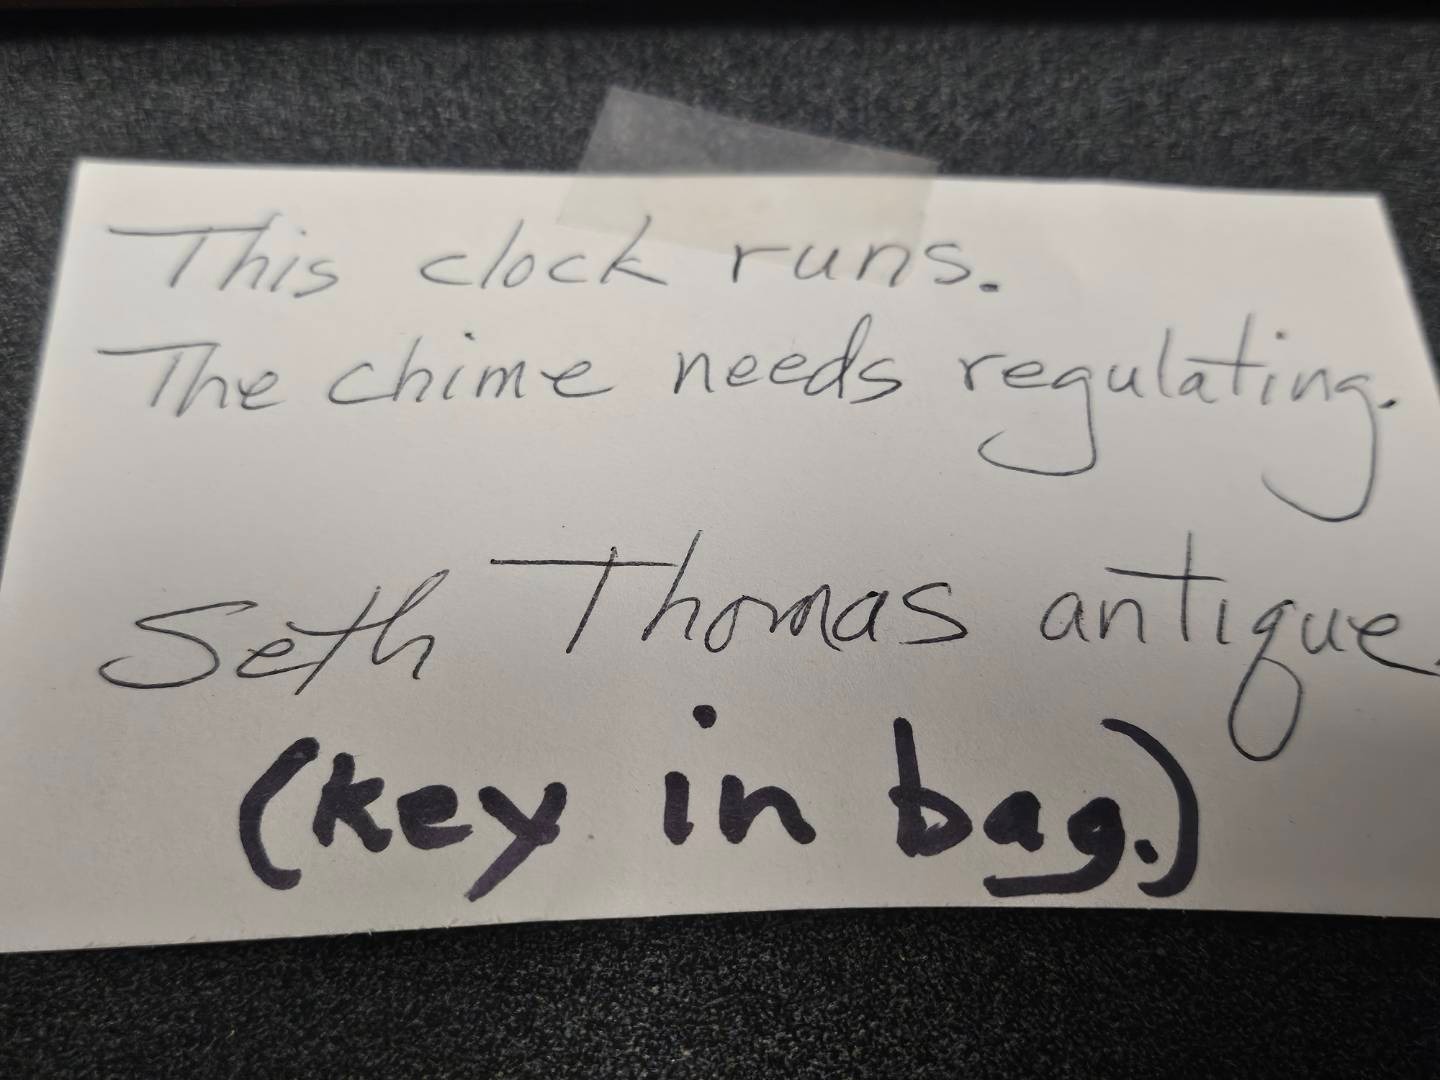 This clock runs.
The chime needs regulating.
Seth Thomas antique.
(key in bag.)